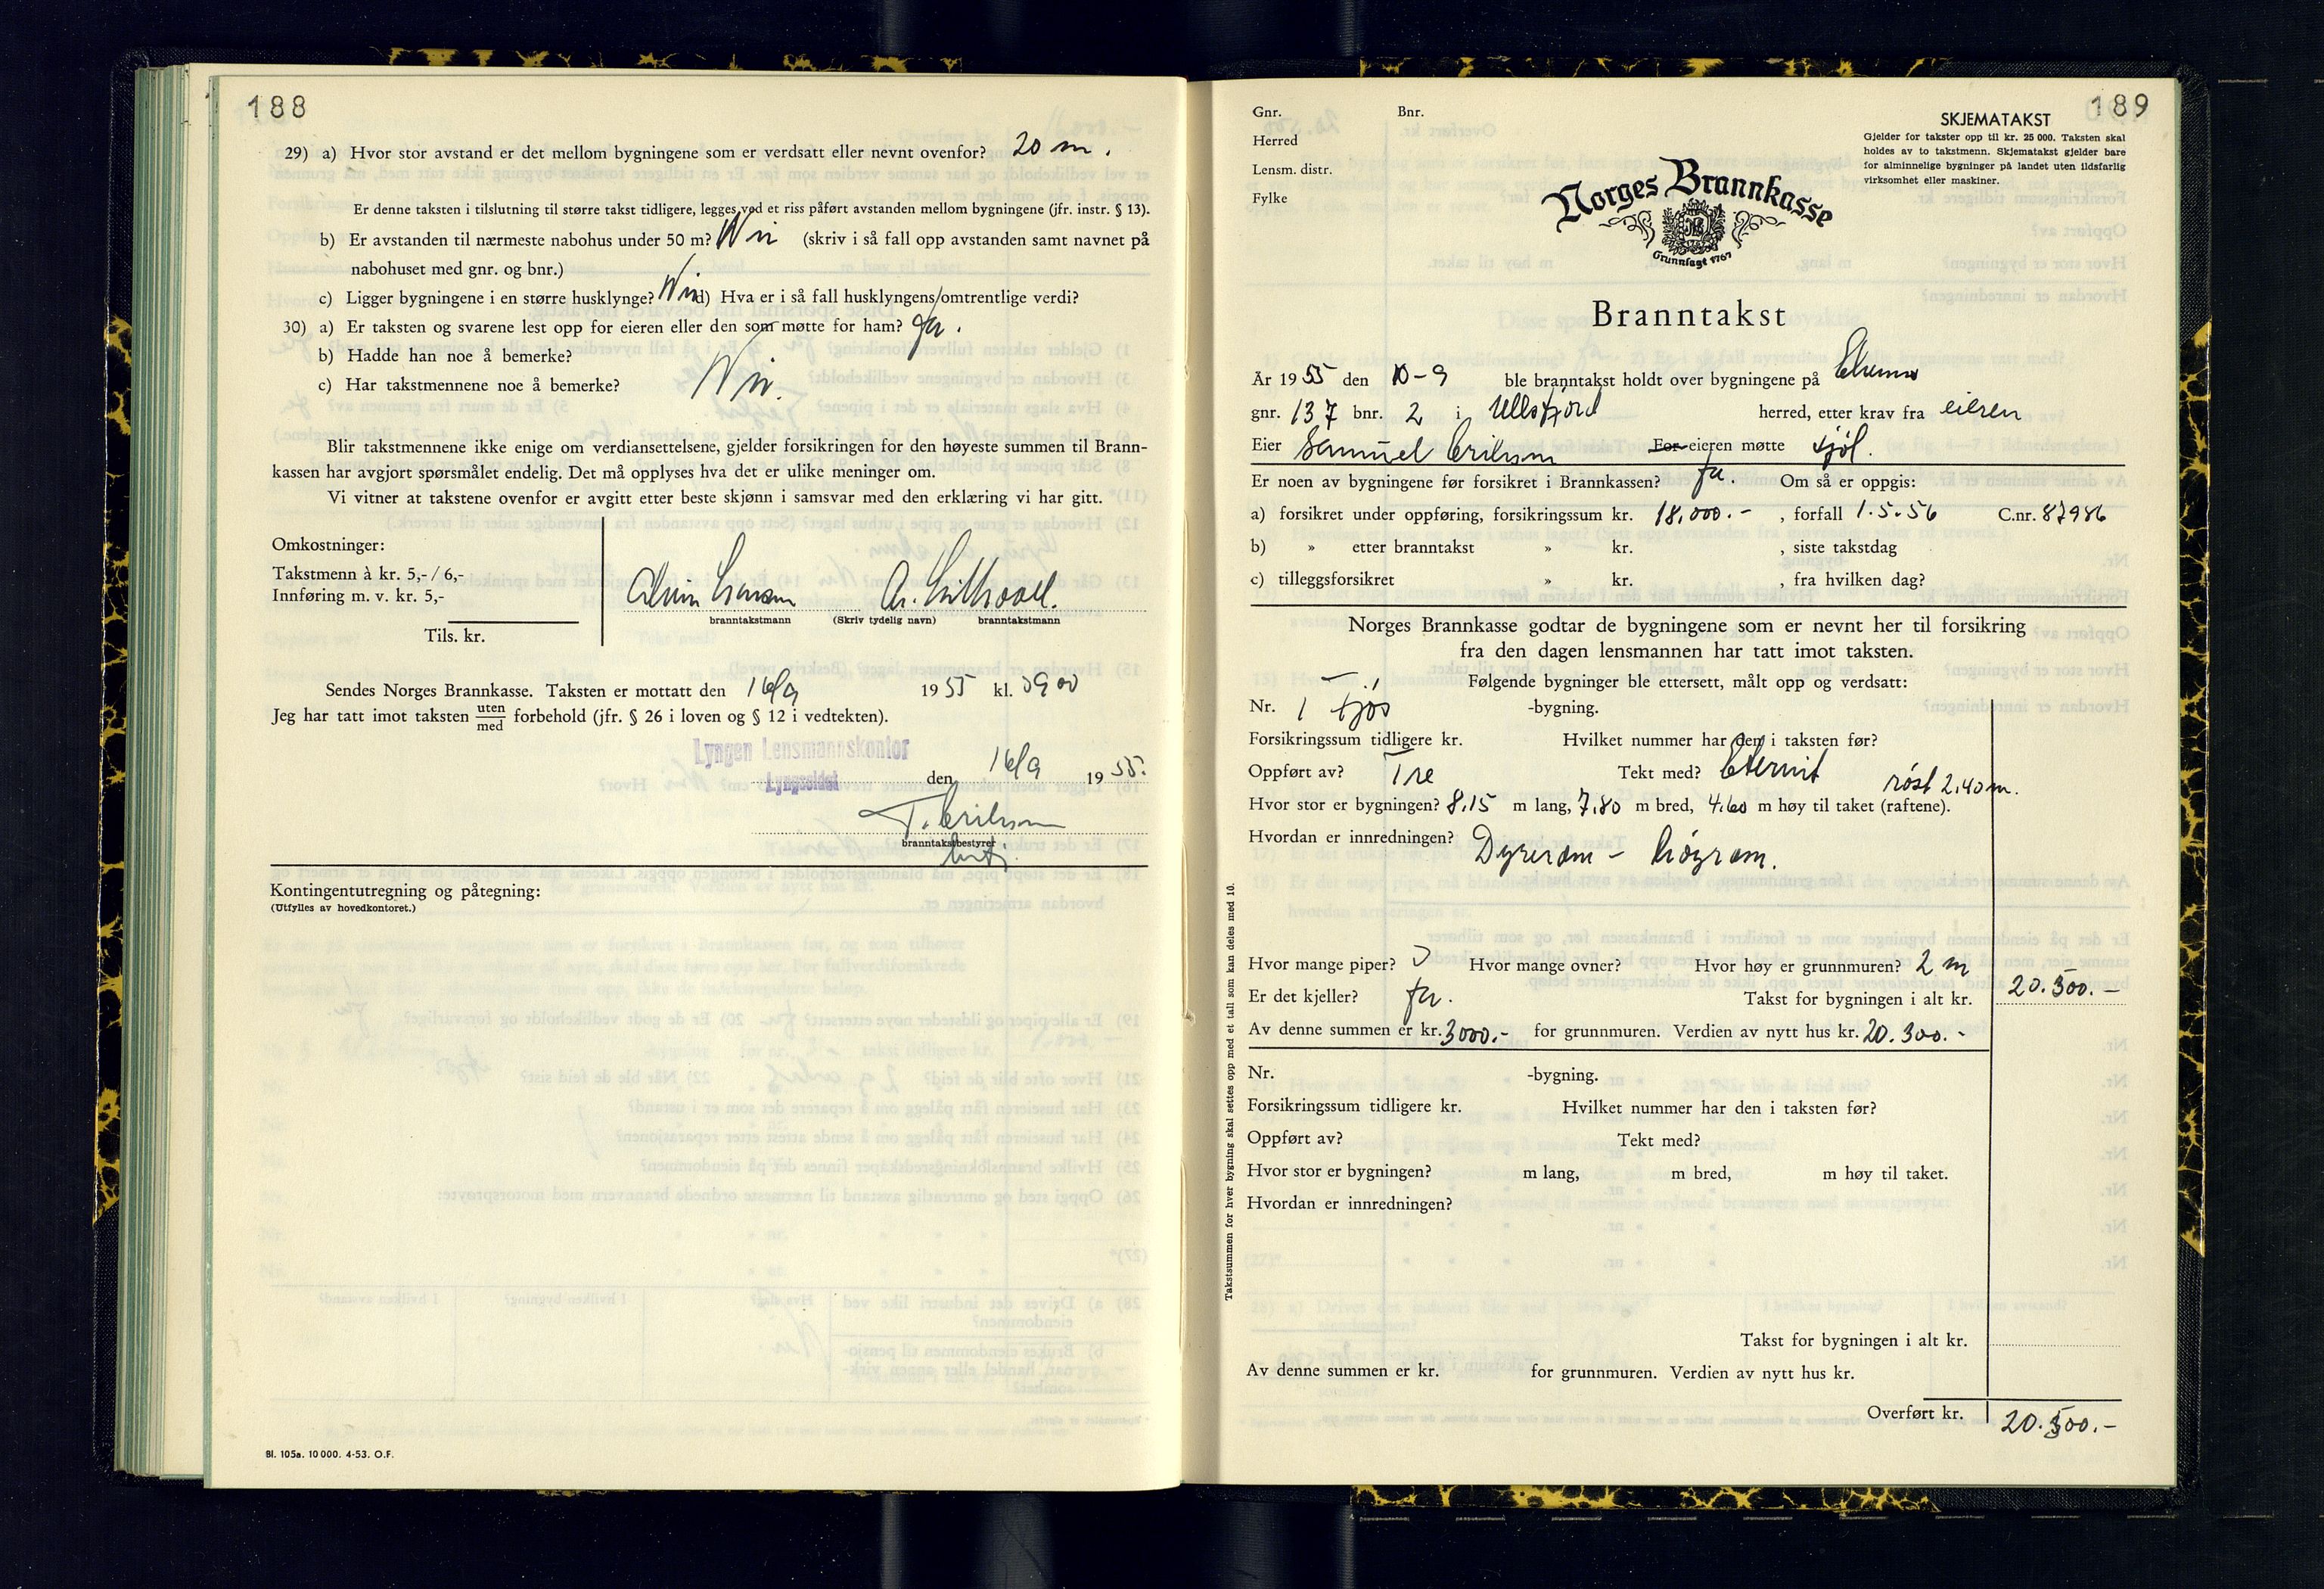 188
29) a) Hvor stor avstand er det mellom bygningene som er verdsatt eller nevnt ovenfor? 20 m.
Er denne taksten i tilslutning til større takst tidligere, legges ved et riss påført avstanden mellom bygningene (jfr. instr. § 13).
b) Er avstanden til nærmeste nabohus under 50 m? Nei (skriv i så fall opp avstanden samt navnet på
nabohuset med gnr. og bnr.)
c) Ligger bygningene i en større husklynge? Nei d) Hva er i så fall husklyngens omtrentlige verdi?
30) a) Er taksten og svarene lest opp for eieren eller den som møtte for ham? Ja.
b) Hadde han noe å bemerke?
c) Har takstmennene noe å bemerke? Nei.
Blir takstmennene ikke enige om verdiansettelsene, gjelder forsikringen for den høyeste summen til Brann-
kassen har avgjort spørsmålet endelig. Det må opplyses hva det er ulike meninger om.
Vi vitner at takstene ovenfor er avgitt etter beste skjønn i samsvar med den erklæring vi har gitt.
Omkostninger:
Takstmenn à kr. 5,-/6,-
Innføring m. v. kr. 5,-
Tils. kr.
branntakstmann (Skriv tydelig navn) branntakstmann
Sendes Norges Brannkasse. Taksten er mottatt den 16/9 1955 kl. 0900
Jeg har tatt imot taksten uten/med forbehold (jfr. § 26 i loven og § 12 i vedtekten).
Lyngen Lensmannskontor
Lyngseidet den 16/9 1955.
T. Eriksen
branntakstbestyrer
Kontingentutregning og påtegning:
(Utfylles av hovedkontoret.)
Bl. 105a. 10 000. 4-53. O.F.
189
Gnr. Bnr.
Herred
Lensm. distr.
Fylke
SKJEMATAKST
Gjelder for takster opp til kr. 25 000. Taksten skal
holdes av to takstmenn. Skjematakst gjelder bare
for alminnelige bygninger på landet uten ildsfarlig
virksomhet eller maskiner.
Norges Brannkasse
Grunnlagt 1767
Branntakst
År 1955 den 10-9 ble branntakst holdt over bygningene på
gnr. 137 bnr. 2 i Ullsfjord herred, etter krav fra eieren
Eier Samuel Eriksen For eieren møtte sjøl.
Er noen av bygningene før forsikret i Brannkassen? Ja. Om så er oppgis:
a) forsikret under oppføring, forsikringssum kr. 18.000.- , forfall 1.5.56 C.nr. 87986
b) » etter branntakst » kr. , siste takstdag
c) tilleggsforsikret » kr. , fra hvilken dag?
Norges Brannkasse godtar de bygningene som er nevnt her til forsikring
fra den dagen lensmannen har tatt imot taksten.
Følgende bygninger ble ettersett, målt opp og verdsatt:
Nr. 1 Fjøs -bygning.
Forsikringssum tidligere kr. Hvilket nummer har den i taksten før?
Oppført av? Tre Tekt med? Eternit
røst 2,40 m.
Hvor stor er bygningen? 8.15 m lang, 7.80 m bred, 4.60 m høy til taket (raftene).
Hvordan er innredningen? Dyrerom - høyrom.
Hvor mange piper? Hvor mange ovner? Hvor høy er grunnmuren? 2 m
Er det kjeller? Ja. Takst for bygningen i alt kr. 20.300.-
Av denne summen er kr. 3000.- for grunnmuren. Verdien av nytt hus kr. 20.300.-
Nr. -bygning.
Forsikringssum tidligere kr. Hvilket nummer har den i taksten før?
Oppført av? Tekt med?
Hvor stor er bygningen? m lang, m bred, m høy til taket.
Hvordan er innredningen?
Takst for bygningen i alt kr.
Av denne summen er kr. for grunnmuren. Verdien av nytt hus kr.
Overført kr. 20.300.-
Takstsummen for hver bygning skal settes opp med et tall som kan deles med 10.